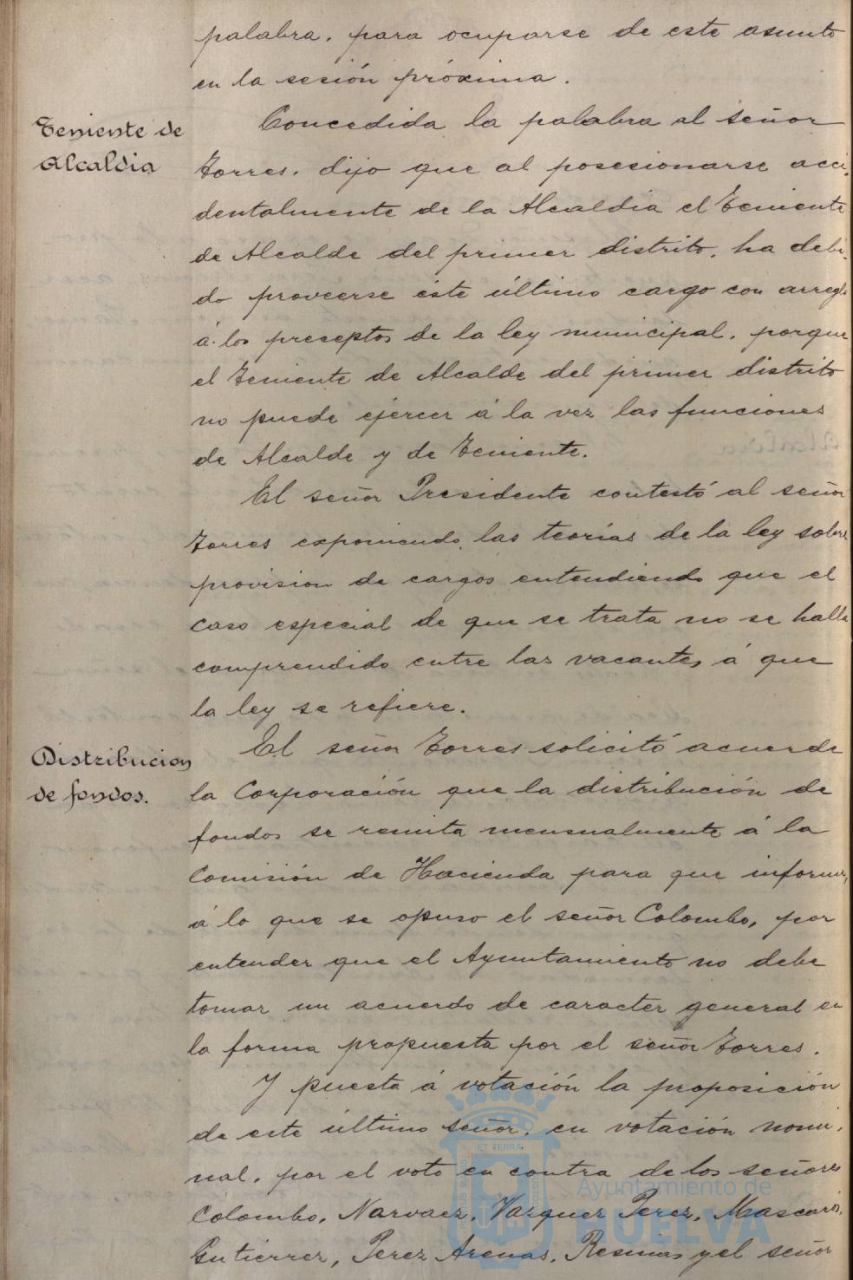 palabra, para ocuparse de este asunto
en la sesión próxima.
Teniente de
Alcaldia
Concedida la palabra al señor
Torres, dijo que al posesionarse acci-
dentalmente de la Alcaldia el Teniente
de Alcalde del primer distrito, ha debi-
do proveerse éste último cargo con arreglo
á los preceptos de la ley municipal, porque
el Teniente de Alcalde del primer distrito
no puede ejercer á la vez las funciones
de Alcalde y de Teniente.
El señor Presidente contestó al señor
Torres exponiendo las teorías de la ley sobre
provision de cargos entendiendo que el
caso especial de que se trata no se halla
comprendido entre las vacantes á que
la ley se refiere.
Distribucion
de fondos.
El señor Torres solicitó acuerde
la Corporación que la distribución de
fondos se remita mensualmente á la
Comisión de Hacienda para que informe,
á lo que se opuso el señor Colombo, por
entender que el Ayuntamiento no debe
tomar un acuerdo de caracter general en
la forma propuesta por el señor Torres.
Y puesta á votación la proposición
de este último señor, en votación nomi-
nal, por el voto en contra de los señores
Colombo, Narvaez, Vazquez Perez, Mascarós,
Gutierrez, Perez Arenas, Resinas y el señor
Ayuntamiento de
HUELVA